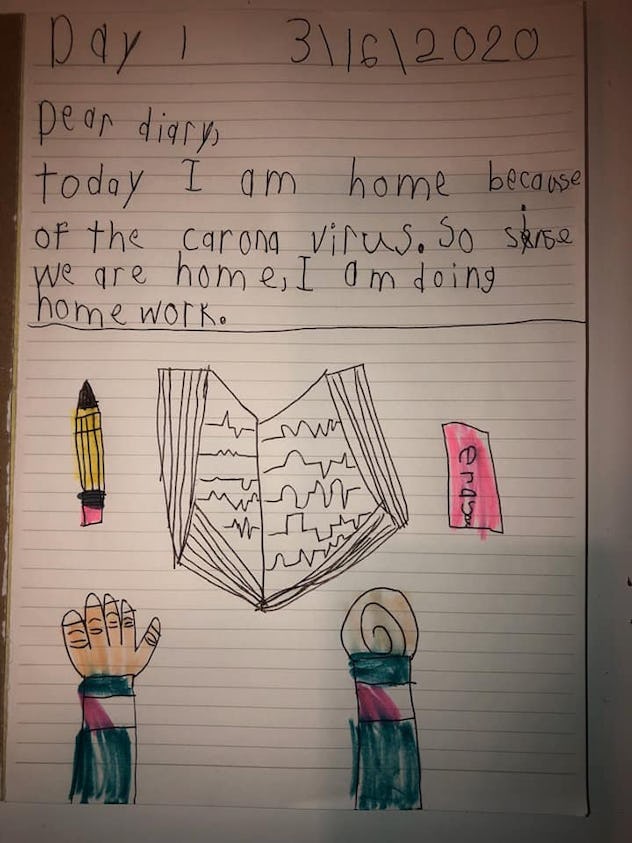 Day 1 3\16\2020
Dear diary,
today I am home because
of the carona virus. So sinse
we are home, I am doing
home work.
eraser